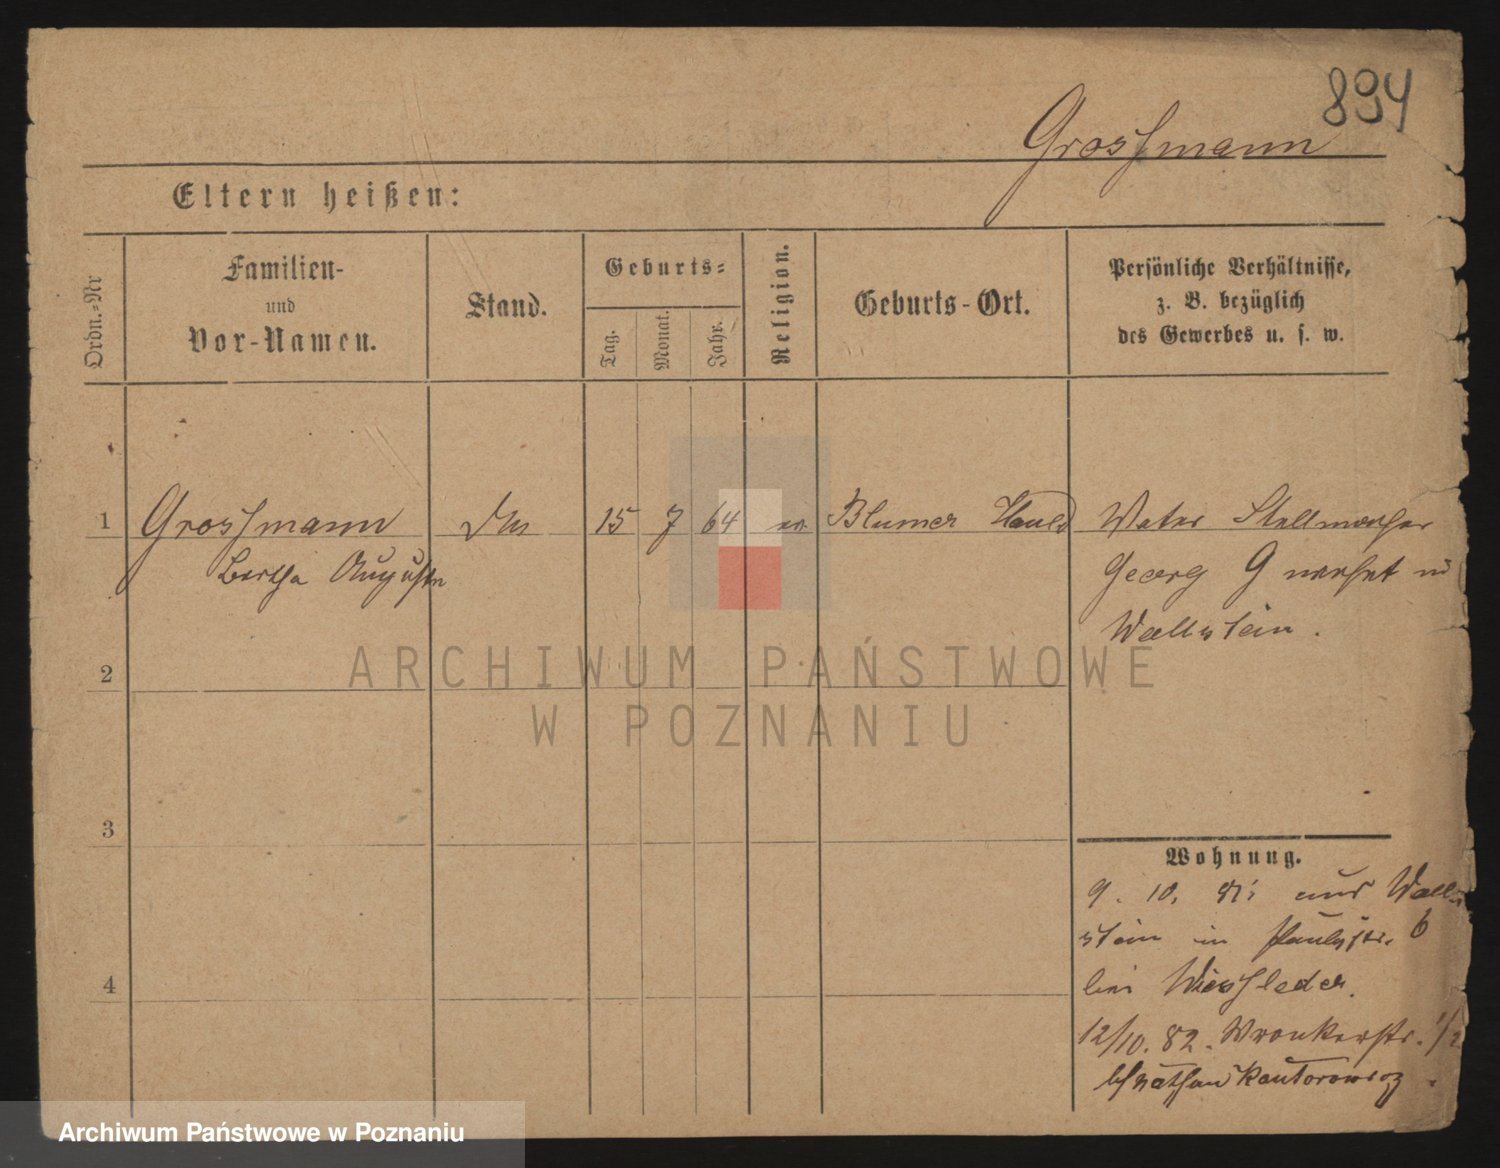 894
Grossmann
Eltern heißen:
Ordn.-Nr
Familien-
und
Vor-Namen.
Stand.
Geburts-
Tag.
Monat.
Jahr.
Religion.
Geburts-Ort.
Persönliche Verhältnisse,
z. B. bezüglich
des Gewerbes u. s. w.
1 Grossmann 15 7 64 ev. Blumer Hauld Vater Stellmacher
Bertha Auguste Georg G wohnt in
Wollstein.
2
3
4
Wohnung.
9. 10. 81 aus Woll-
stein in Paulystr. 6
bei Wiesfleder.
12/10. 82. Wronkerstr. 1/2
b/ Nathan Kantorowicz.
ARCHIWUM PAŃSTWOWE
W POZNANIU
Archiwum Państwowe w Poznaniu